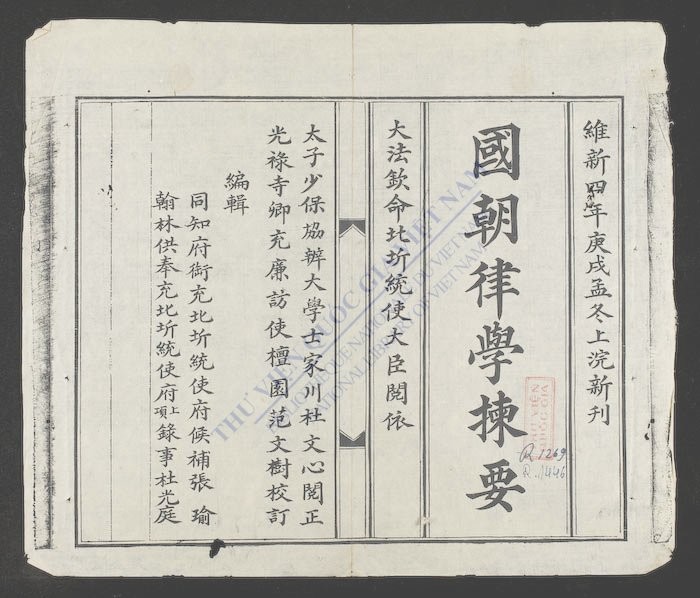 維新四年庚戌孟冬上浣新刊
國朝律學揀要
大法欽命北圻統使大臣閲依
太子少保協辦大學士家川杜文心閲正
光祿寺卿充廉訪使檀園范文樹校訂
編輯
同知府銜充北圻統使府候補張瑜
翰林供奉充北圻統使府上項錄事杜光庭
THƯ VIỆN QUỐC GIA VIỆT NAM
BIBLIOTHÈQUE NATIONALE DU VIETNAM
NATIONAL LIBRARY OF VIETNAM
THƯ VIỆN
QUỐC GIA
R.1269
R.1446